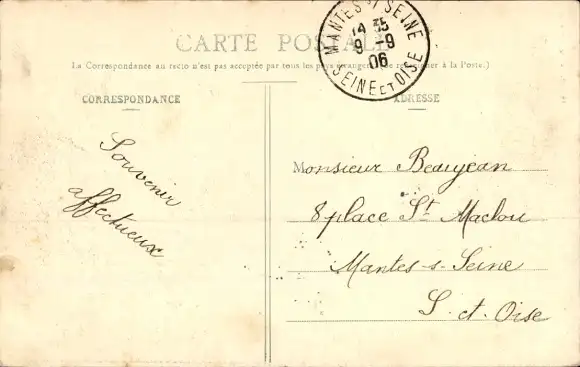 CARTE POSTALE
(La Correspondance au recto n'est pas acceptée par tous les pays étrangers. (Se renseigner à la Poste.)
CORRESPONDANCE
ADRESSE
MANTES S/ SEINE
14 35
9 -9
06
SEINE ET OISE
Souvenir
affectueux
Monsieur Beaujean
8 place St Maclou
Mantes-s-Seine
S. et. Oise